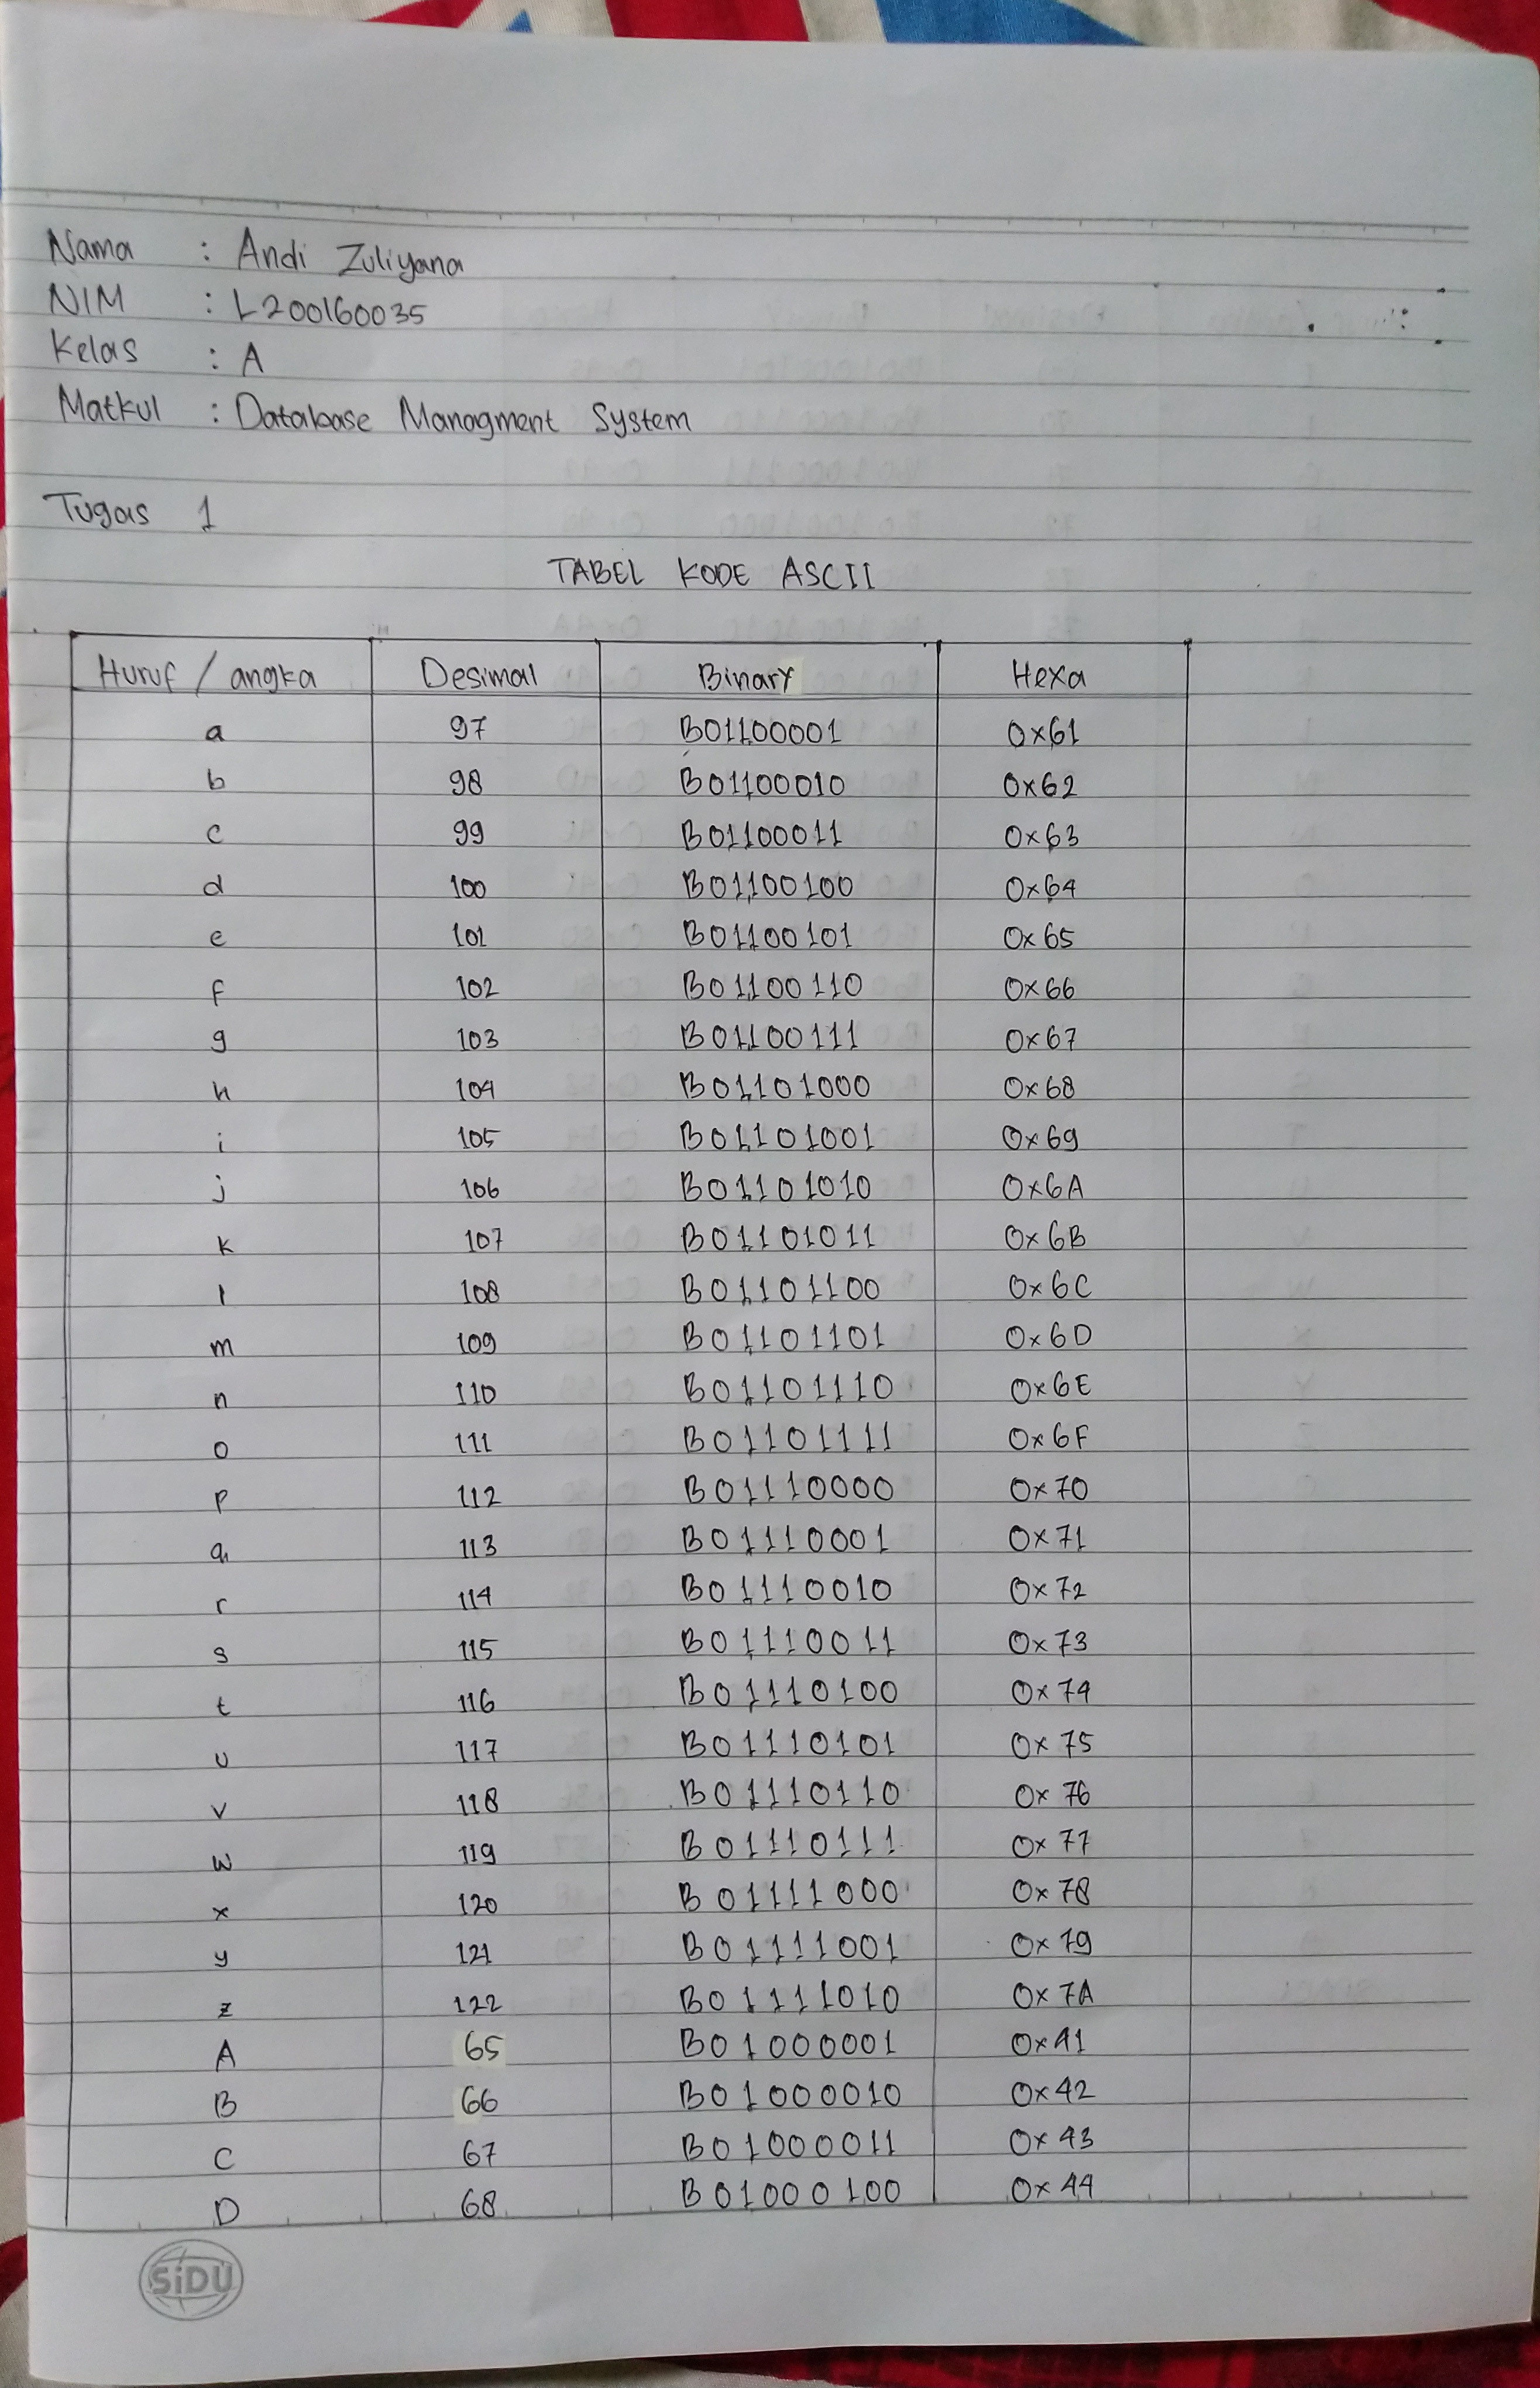 Nama : Andi Zuliyana
NIM : L200160035
Kelas : A
Matkul : Database Managment System
Tugas 1
TABEL KODE ASCII
Huruf / angka Desimal Binary Hexa
a 97 B01100001 0x61
b 98 B01100010 0x62
c 99 B01100011 0x63
d 100 B01100100 0x64
e 101 B01100101 0x65
f 102 B01100110 0x66
g 103 B01100111 0x67
h 104 B01101000 0x68
i 105 B01101001 0x69
j 106 B01101010 0x6A
k 107 B01101011 0x6B
l 108 B01101100 0x6C
m 109 B01101101 0x6D
n 110 B01101110 0x6E
o 111 B01101111 0x6F
p 112 B01110000 0x70
q 113 B01110001 0x71
r 114 B01110010 0x72
s 115 B01110011 0x73
t 116 B01110100 0x74
u 117 B01110101 0x75
v 118 B01110110 0x76
w 119 B01110111 0x77
x 120 B01111000 0x78
y 121 B01111001 0x79
z 122 B01111010 0x7A
A 65 B01000001 0x41
B 66 B01000010 0x42
C 67 B01000011 0x43
D 68 B01000100 0x44
SiDU